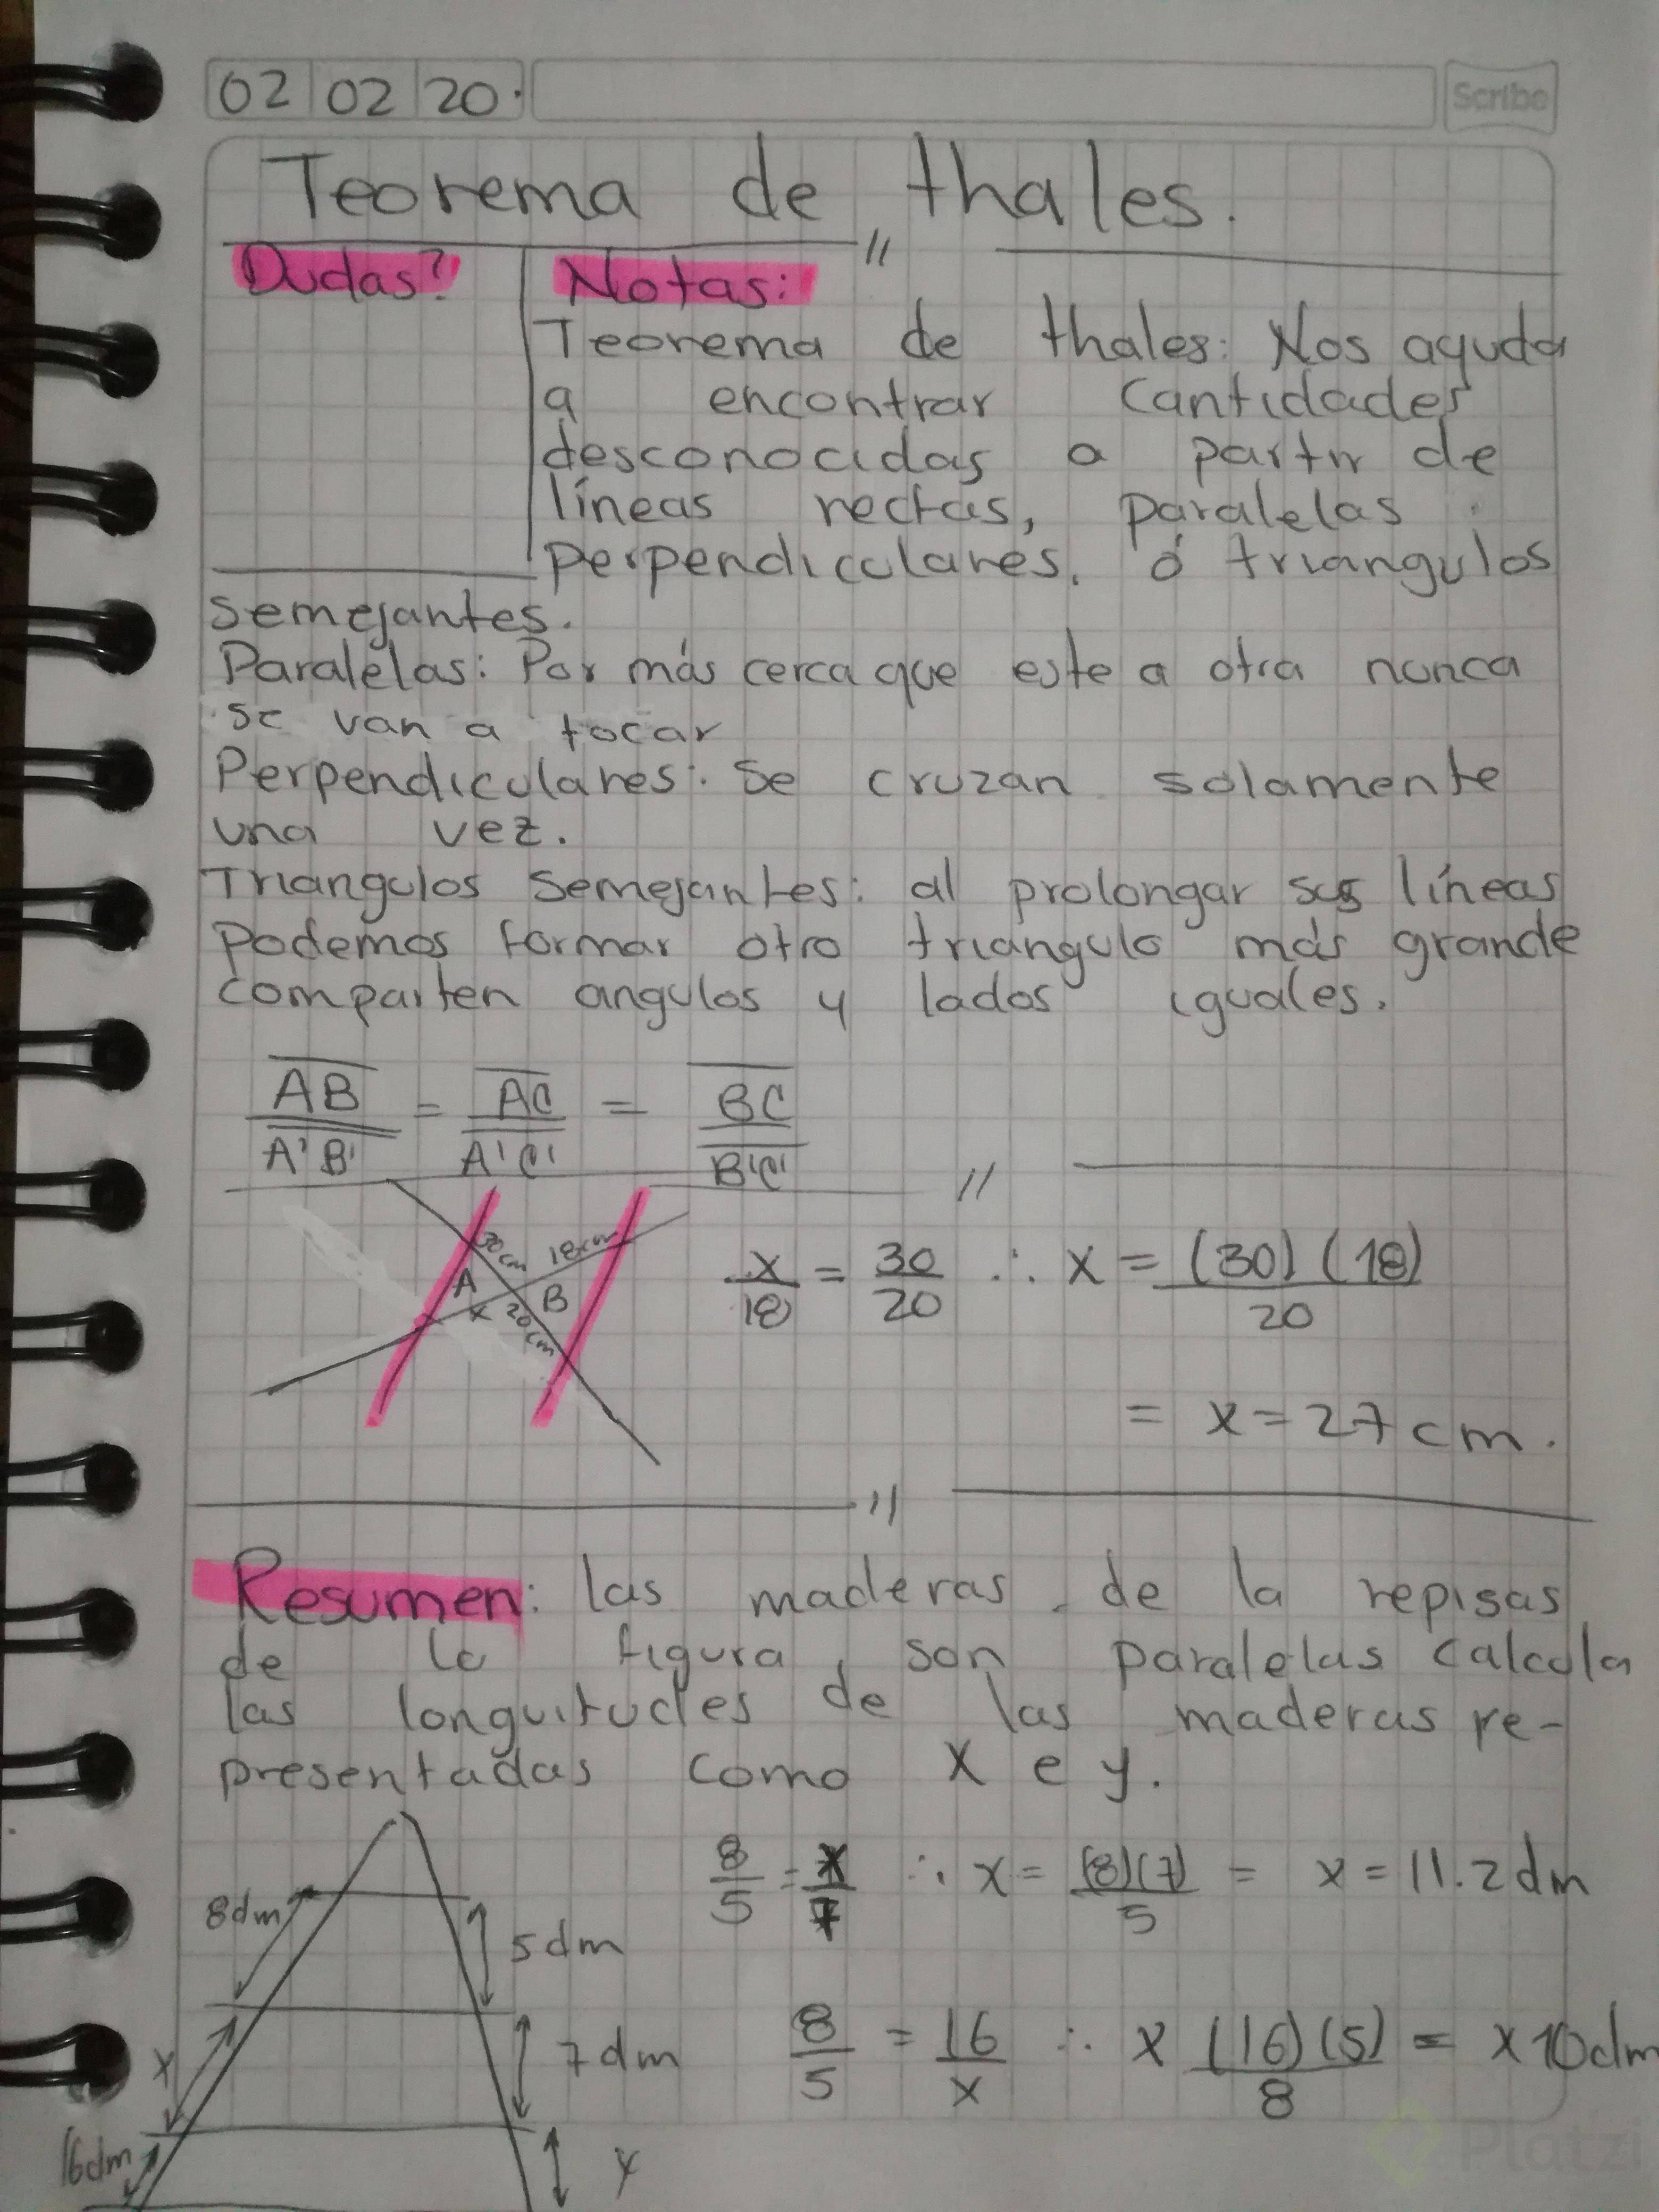 02 02 20. Scribe
Teorema de thales.
Dudas? Notas:
Teorema de thales: Nos ayuda
a encontrar cantidades
desconocidas a partir de
líneas rectas, paralelas
perpendiculares, ó triangulos
semejantes.
Paralelas: Por más cerca que este a otra nunca
se van a tocar
Perpendiculares: Se cruzan solamente
una vez.
Triangulos semejantes: al prolongar sus líneas
podemos formar otro triangulo más grande
comparten angulos y lados iguales.
AB/A'B' = AC/A'C' = BC/B'C'
30cm 18cm
A B
x 20cm
x/18 = 30/20 ∴ x = (30)(18)/20
= x = 27 cm.
Resumen: las maderas de la repisas
de la figura, son paralelas calcula
las longuitudes de las maderas re-
presentadas como X e y.
8/5 = x/7 ∴ x = (8)(7)/5 = x = 11.2 dm
8dm
5dm
8/5 = 16/x ∴ x (16)(5)/8 = x 10dm
x 7dm
16dm y
Platzi